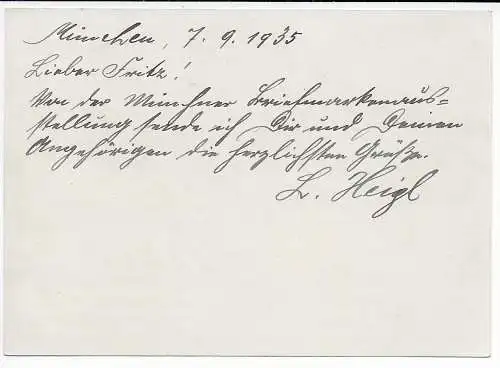 München, 7. 9. 1935
Lieber Fritz!
Von der Münchner Briefmarkenaus=
stellung sende ich Dir und Deinen
Angehörigen die herzlichsten Grüße.
L. Heigl